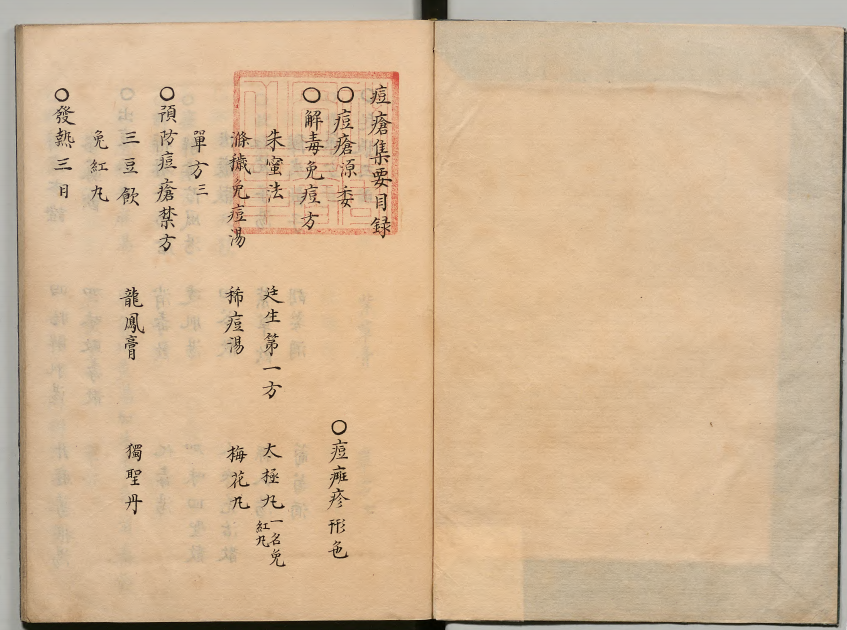 痘瘡集要目録
〇痘瘡源委 〇痘瘫疹形色
〇解毒免痘方
朱蜜法 延生第一方 太極丸 一名免紅丸
滌穢免痘湯 稀痘湯 梅花丸
單方三
〇預防痘瘡禁方
三豆飲 龍鳳膏 獨聖丹
免紅丸
〇發熱三日